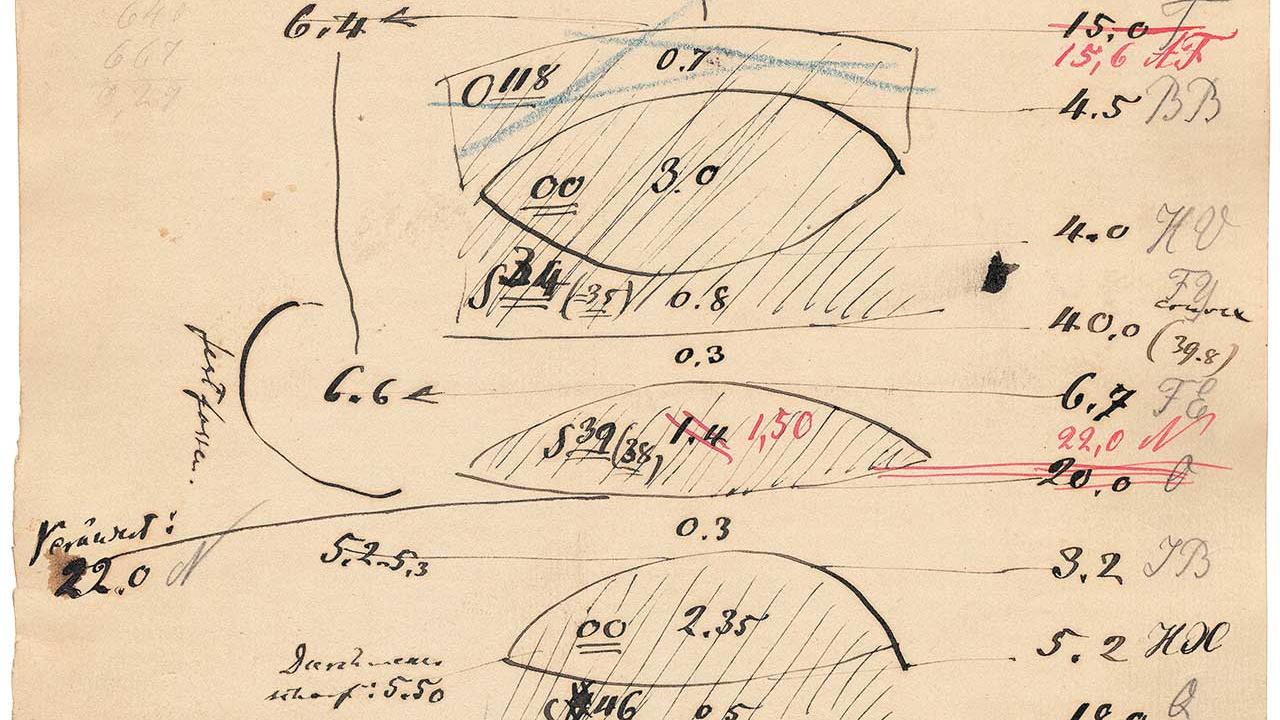 648
667
6.4
O 118
0.7
15.0 F
15,6 AF
4.5 BB
00 3.0
4.0 HV
S 34 (35) 0.8
FY
40,0 convex
(39.8)
0.3
6.6
6.7 FE
S 39 (38) 1.4 1,50
22,0 N
20.0 O
fest fassen.
Verändert:
22.0 N
0.3
5.2-5,3
3.2 JB
00 2.35
5.2 HX
Durchmesser
scharf: 5.50
46 0.5
Q